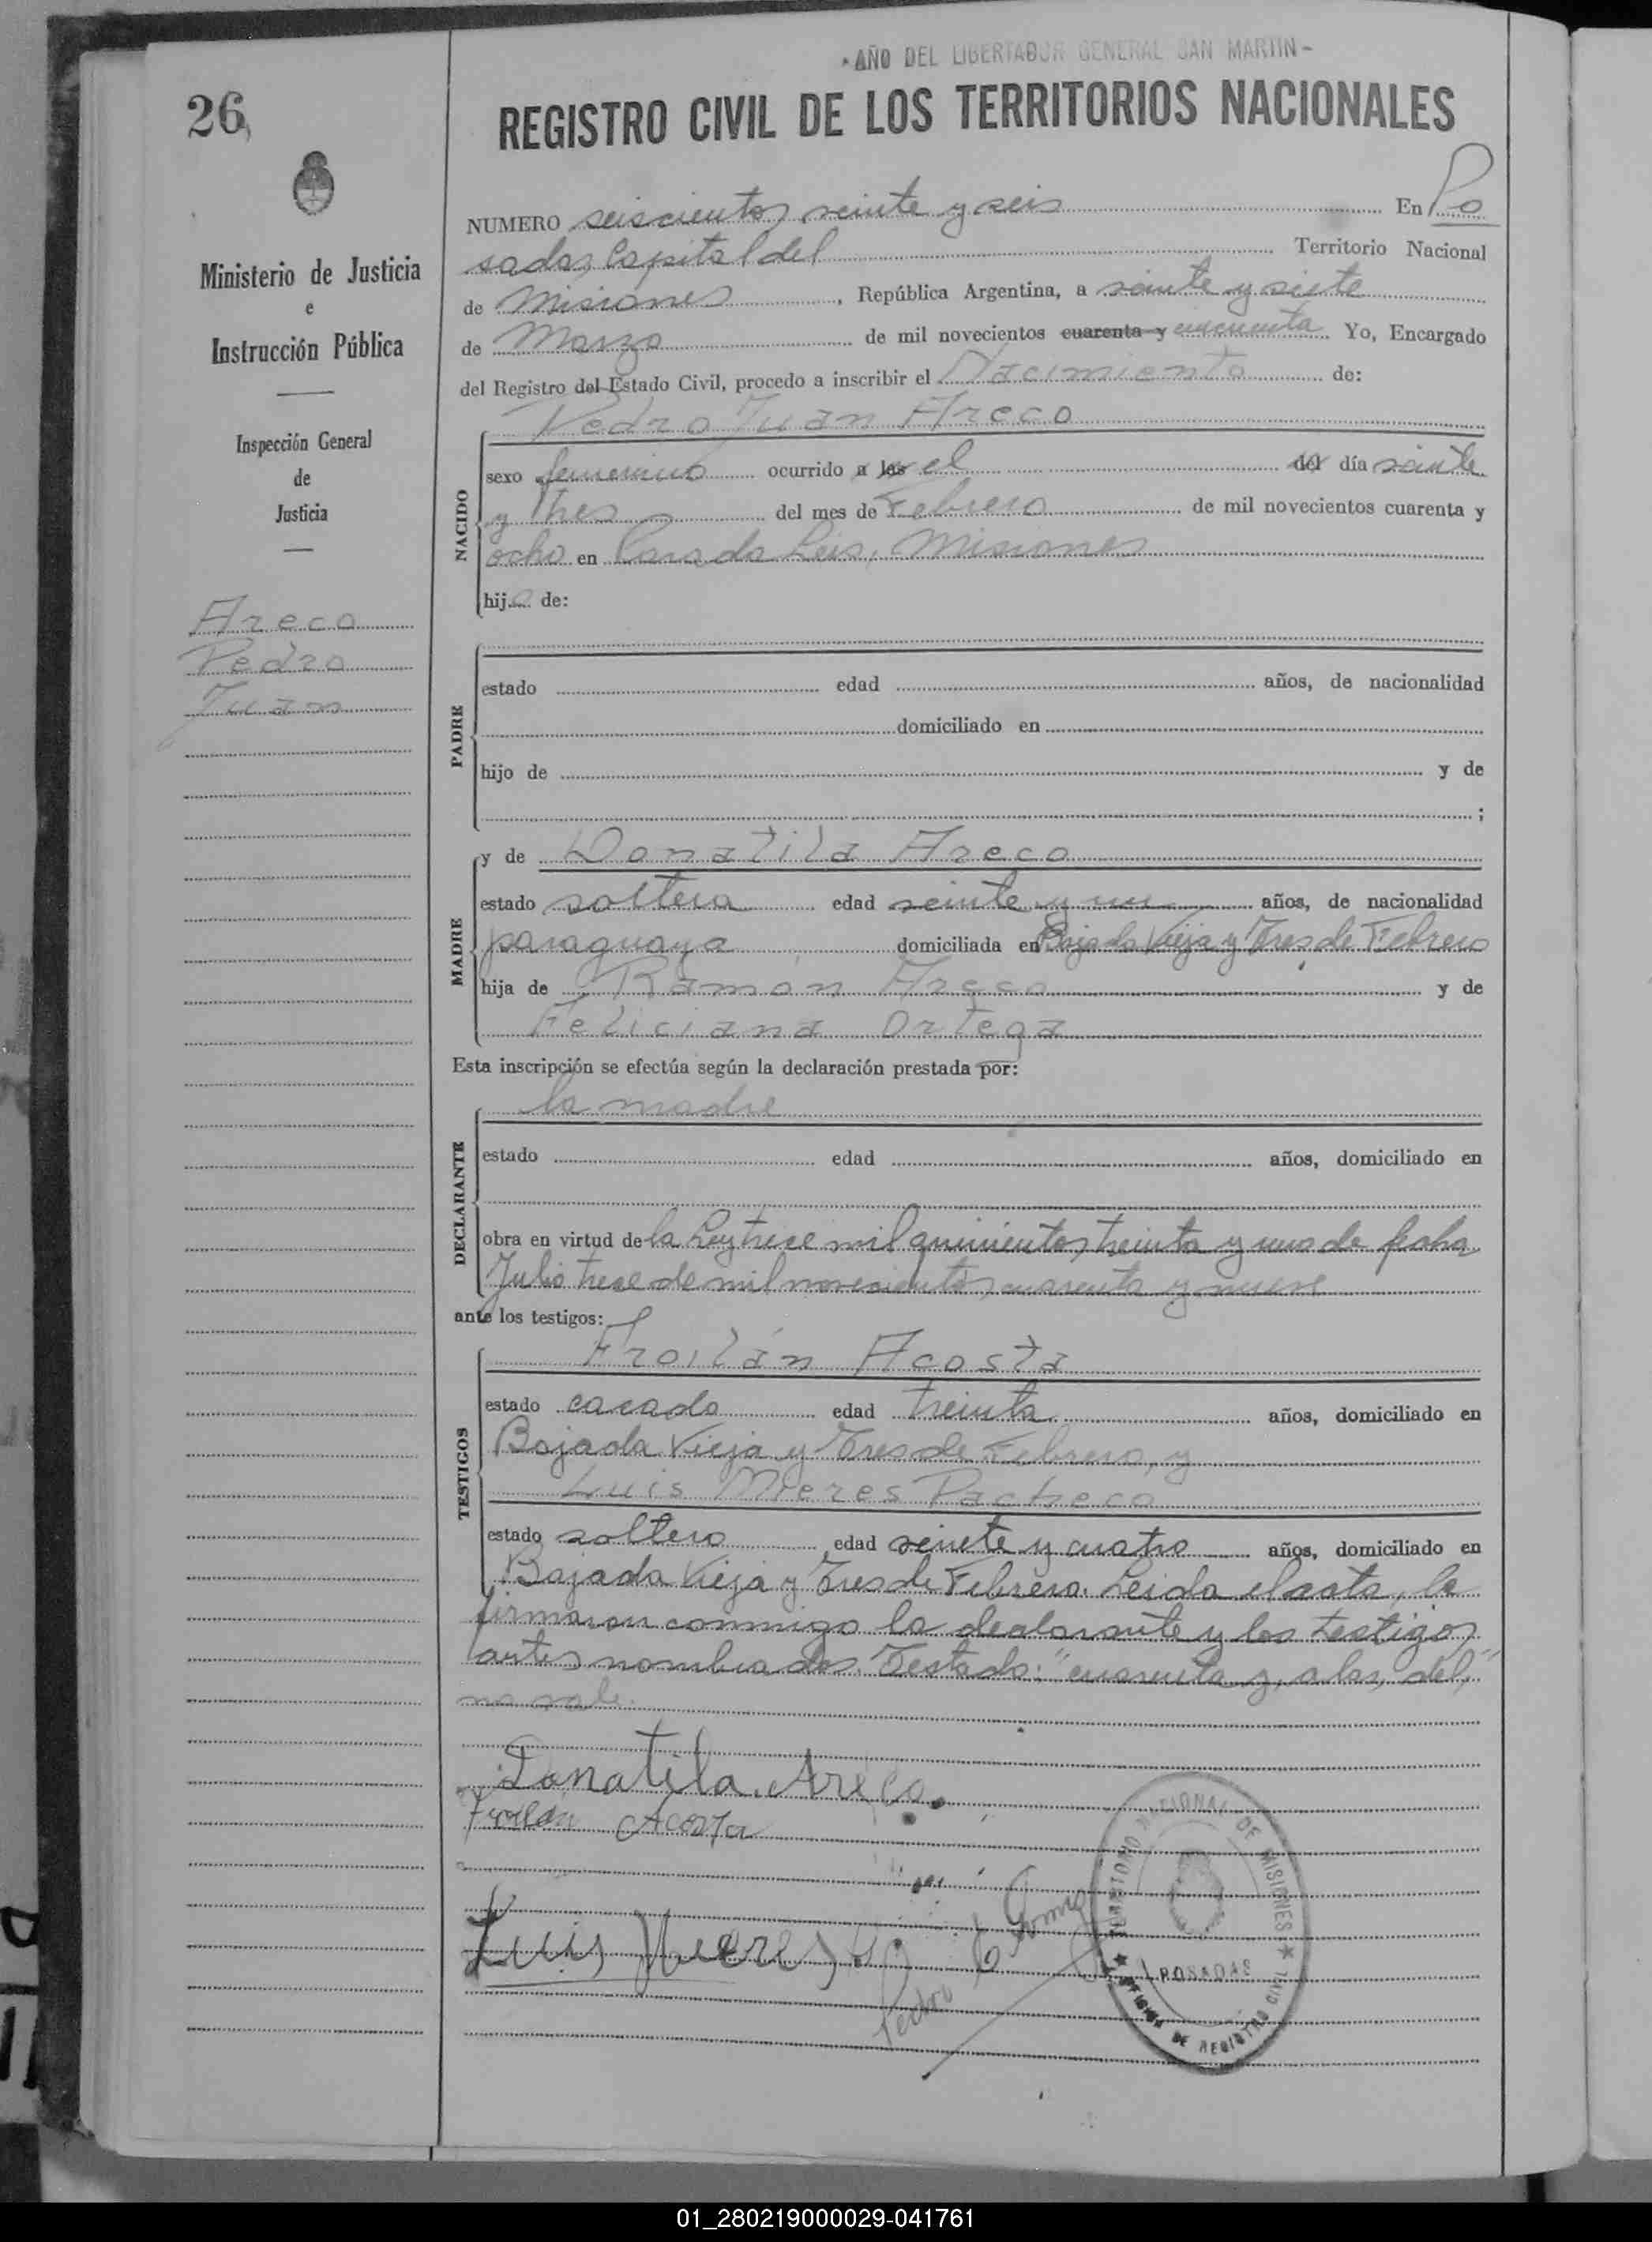 - AÑO DEL LIBERTADOR GENERAL SAN MARTIN -
26
REGISTRO CIVIL DE LOS TERRITORIOS NACIONALES
Ministerio de Justicia
e
Instrucción Pública
Inspección General
de
Justicia
Areco
Pedro
Juan
NUMERO seiscientos veinte y seis En Po
sadas, Capital del Territorio Nacional
de Misiones, República Argentina, a veinte y siete
de Marzo de mil novecientos cuarenta y cincuenta Yo, Encargado
del Registro del Estado Civil, procedo a inscribir el Nacimiento de:
Pedro Juan Areco
NACIDO
sexo femenino ocurrido a las el del día veinte
y tres del mes de Febrero de mil novecientos cuarenta y
ocho en Parada Leis, Misiones
hijo de:
PADRE
estado edad años, de nacionalidad
domiciliado en
hijo de y de
;
MADRE
y de Donatila Areco
estado soltera edad veinte y un años, de nacionalidad
paraguaya domiciliada en Bajada Vieja y Tres de Febrero
hija de Ramón Areco y de
Feliciana Ortega
Esta inscripción se efectúa según la declaración prestada por:
DECLARANTE
la madre
estado edad años, domiciliado en
obra en virtud de la Ley trece mil quinientos treinta y uno de fecha
Julio trece de mil novecientos cuarenta y nueve
ante los testigos:
TESTIGOS
Froilán Acosta
estado casado edad treinta años, domiciliado en
Bajada Vieja y Tres de Febrero, y
Luis Mieres Pacheco
estado soltero edad veinte y cuatro años, domiciliado en
Bajada Vieja y Tres de Febrero. Leida el acta, la
firmaron conmigo la declarante y los testigos
antes nombrados. Testado: "cuarenta y, a las, del,"
no vale.
Donatila Areco.
Froilán Acosta
Luis Mieres P.
Pedro Gomez
TERRITORIO NACIONAL DE MISIONES
POSADAS
DE REGISTRO CIVIL
01_280219000029-041761